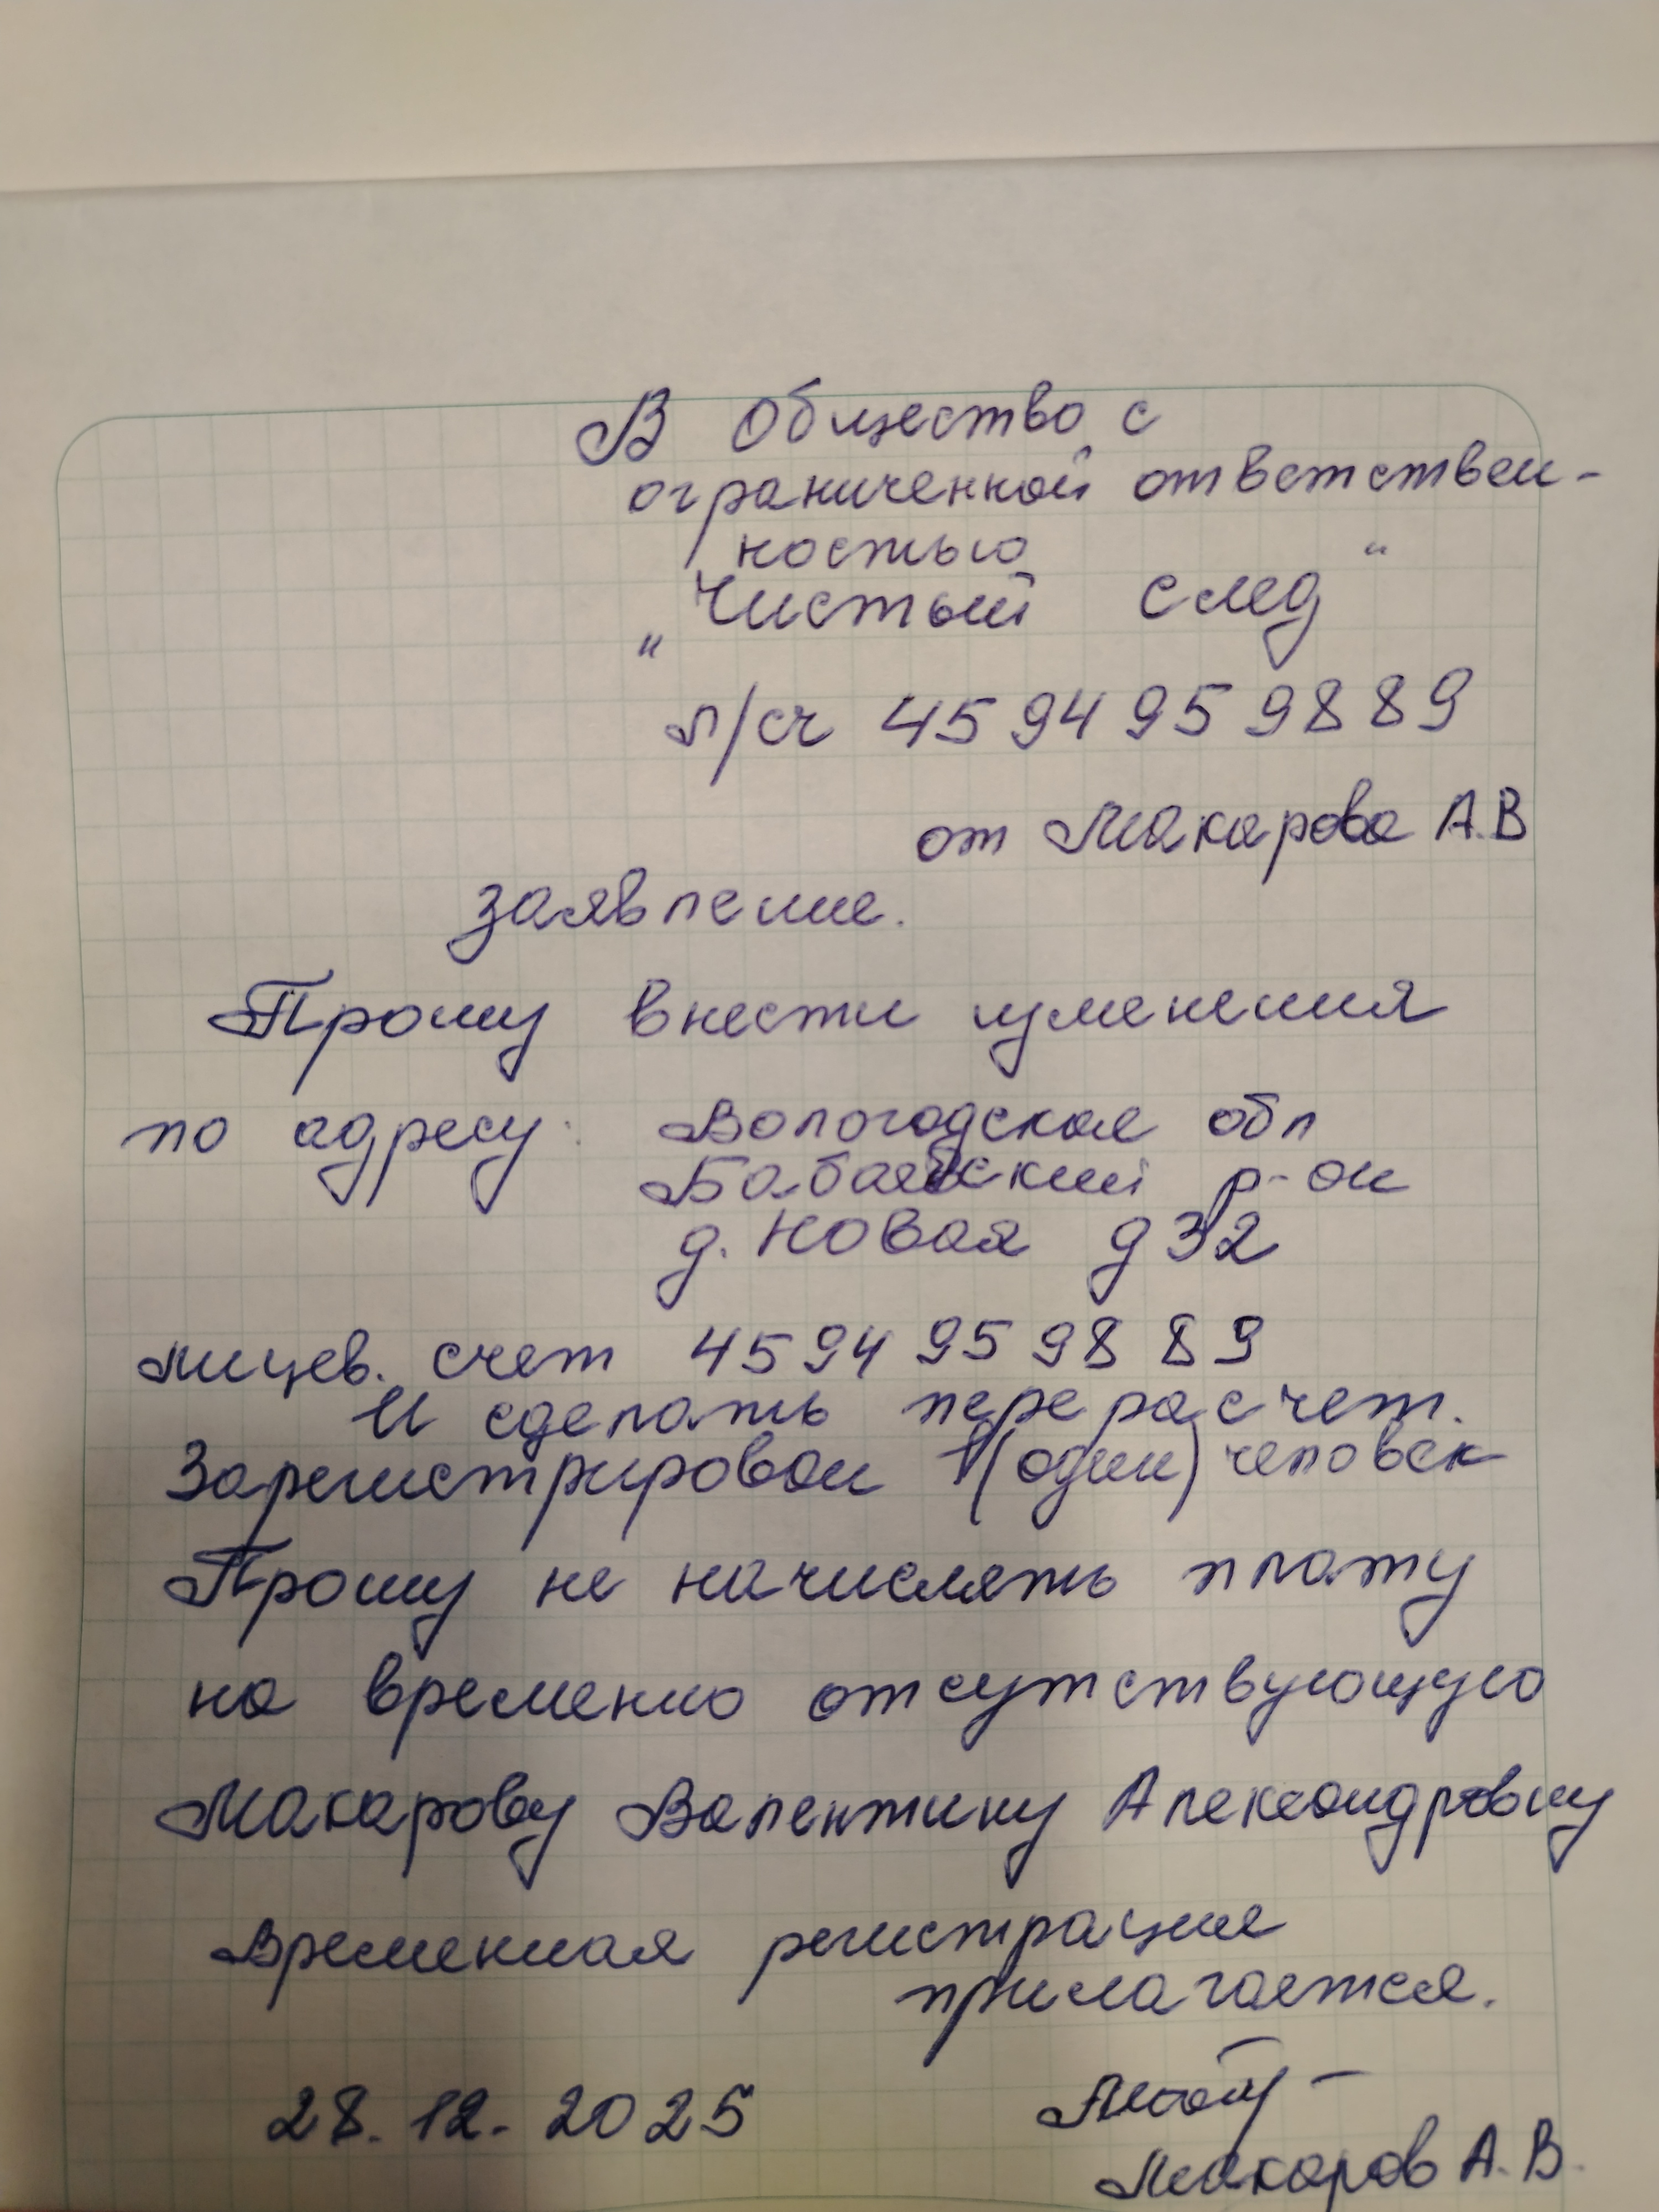 В Общество с
ограниченной ответствен-
ностью
„Чистый след“
л/сч 45 94 95 98 89
от Макарова А.В
заявление.
Прошу внести изменения
по адресу: Вологодская обл
Бабаевский р-он
д. Новая д 32
лицев. счет 45 94 95 98 89
И сделать перерасчет.
Зарегистрирован 1 (один) человек
Прошу не начислять плату
на временно отсутствующую
Макарову Валентину Александровну
Временная регистрация
прилагается.
28. 12. 2025
Макаров А. В.